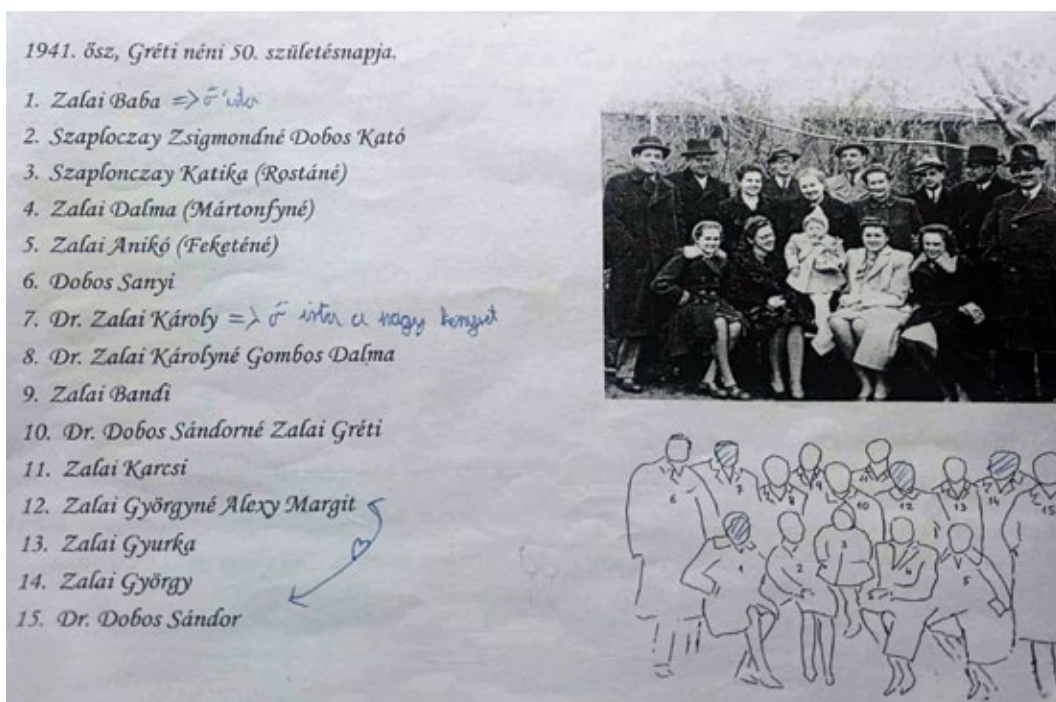 1941. ősz, Gréti néni 50. születésnapja.
1. Zalai Baba => ő
2. Szaploczay Zsigmondné Dobos Kató
3. Szaplonczay Katika (Rostáné)
4. Zalai Dalma (Mártonfyné)
5. Zalai Anikó (Feketéné)
6. Dobos Sanyi
7. Dr. Zalai Károly => ő írta a nagy könyvet
8. Dr. Zalai Károlyné Gombos Dalma
9. Zalai Bandi
10. Dr. Dobos Sándorné Zalai Gréti
11. Zalai Karcsi
12. Zalai Györgyné Alexy Margit
13. Zalai Gyurka
14. Zalai György
15. Dr. Dobos Sándor
6 7 8 9 10 12 13 14 15
1 2 3 4 5